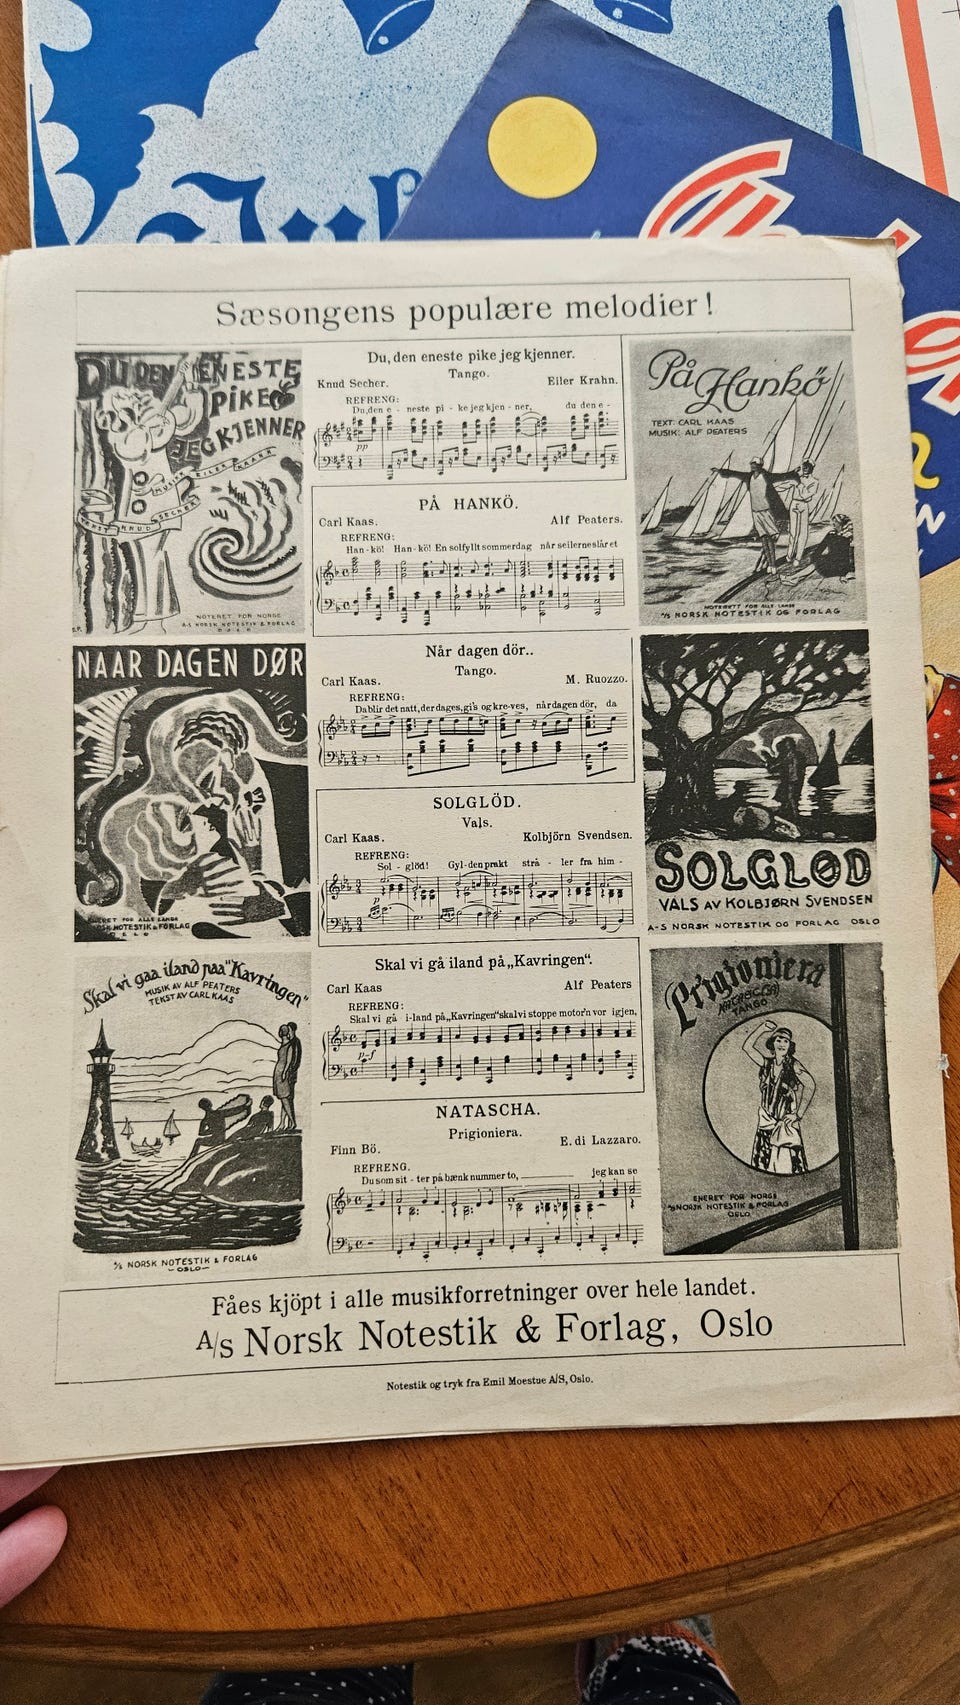 Sæsongens populære melodier!
DU DEN ENESTE
PIKE
JEG KJENNER
MUSIKK EILER KRAHN
TEKST KNUD SECHER
NOTERET FOR NORGE
A-S NORSK NOTESTIK & FORLAG
OSLO
Du, den eneste pike jeg kjenner.
Tango.
Knud Secher. Eiler Krahn.
REFRENG:
Du, den e - neste pi - ke jeg kjen - ner, du den e -
På Hankö
TEXT: CARL KAAS
MUSIK: ALF PEATERS
NOTERETT FOR ALLE LANDE
A/S NORSK NOTESTIK OG FORLAG
PÅ HANKÖ.
Carl Kaas. Alf Peaters.
REFRENG:
Han - kö! Han - kö! En solfyllt sommerdag når seilerne slår et
NAAR DAGEN DØR
ENERET FOR ALLE LANDE
NORSK NOTESTIK & FORLAG
OSLO
Når dagen dör..
Tango.
Carl Kaas. M. Ruozzo.
REFRENG:
Da blir det natt, der dages, gis og kre - ves, når dagen dör, da
SOLGLØD
VALS AV KOLBJØRN SVENDSEN
A-S NORSK NOTESTIK OG FORLAG OSLO
SOLGLÖD.
Vals.
Carl Kaas. Kolbjörn Svendsen.
REFRENG:
Sol - glöd! Gyl - den prakt strå - ler fra him -
Skal vi gaa iland paa "Kavringen"
MUSIK AV ALF PEATERS
TEKST AV CARL KAAS
A/S NORSK NOTESTIK & FORLAG
-OSLO-
Skal vi gå iland på „Kavringen“.
Carl Kaas Alf Peaters
REFRENG:
Skal vi gå i - land på „Kavringen“ skal vi stoppe motor'n vor igjen,
Prigioniera
TANGO
ENERET FOR NORGE
A/S NORSK NOTESTIK & FORLAG
OSLO
NATASCHA.
Prigioniera.
Finn Bö. E. di Lazzaro.
REFRENG.
Du som sit - ter på bænk nummer to, jeg kan se
Fåes kjöpt i alle musikforretninger over hele landet.
A/s Norsk Notestik & Forlag, Oslo
Notestik og tryk fra Emil Moestue A/S, Oslo.